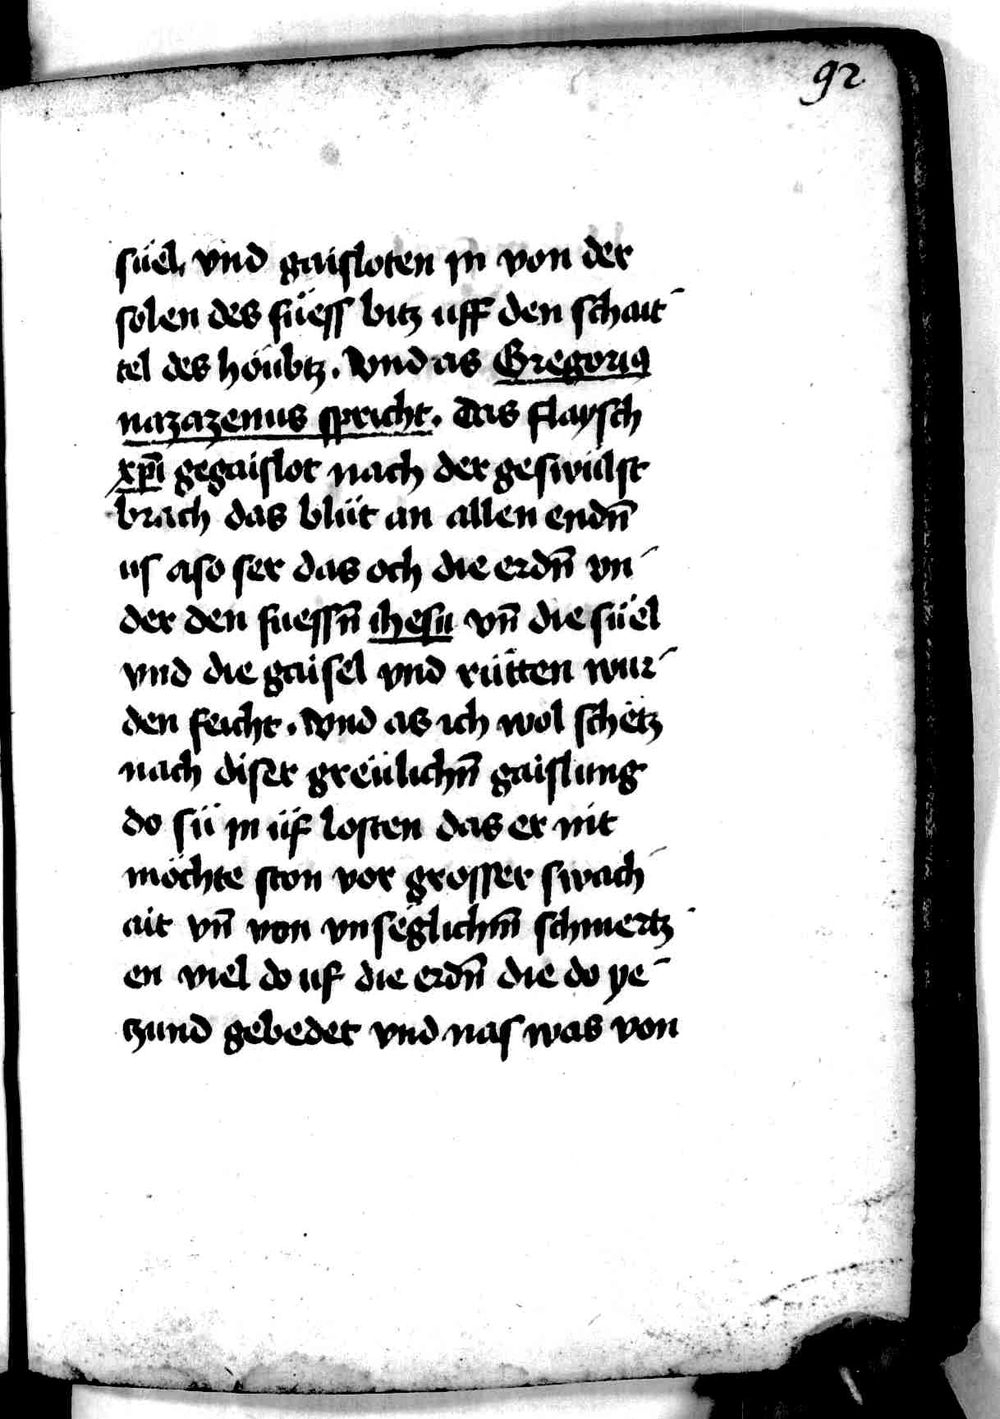 92
süel, vnd gaisloten in von der
solen des füess bitz uff den schait-
tel des höubtz. Vnd as Gregoriꝯ
nazazenus spricht. Das flaysch
xp̄i gegaislot nach der geswulst
brach das blüt an allen endn̄
us aso ser das och die erdn̄ vn-
der den fuessn̄ ihesu vn̄ die süel
vnd die gaisel vnd rütten wur-
den feicht. Vnd as ich wol schetz
nach diser greülichn̄ gaislung
do sü in üf losten das er nit
möchte ston vor grosser swach-
ait vn̄ von vnseglichm̄ schmertz-
en viel do uf die erdn̄ die do ye-
tzund gebedet vnd nas was von